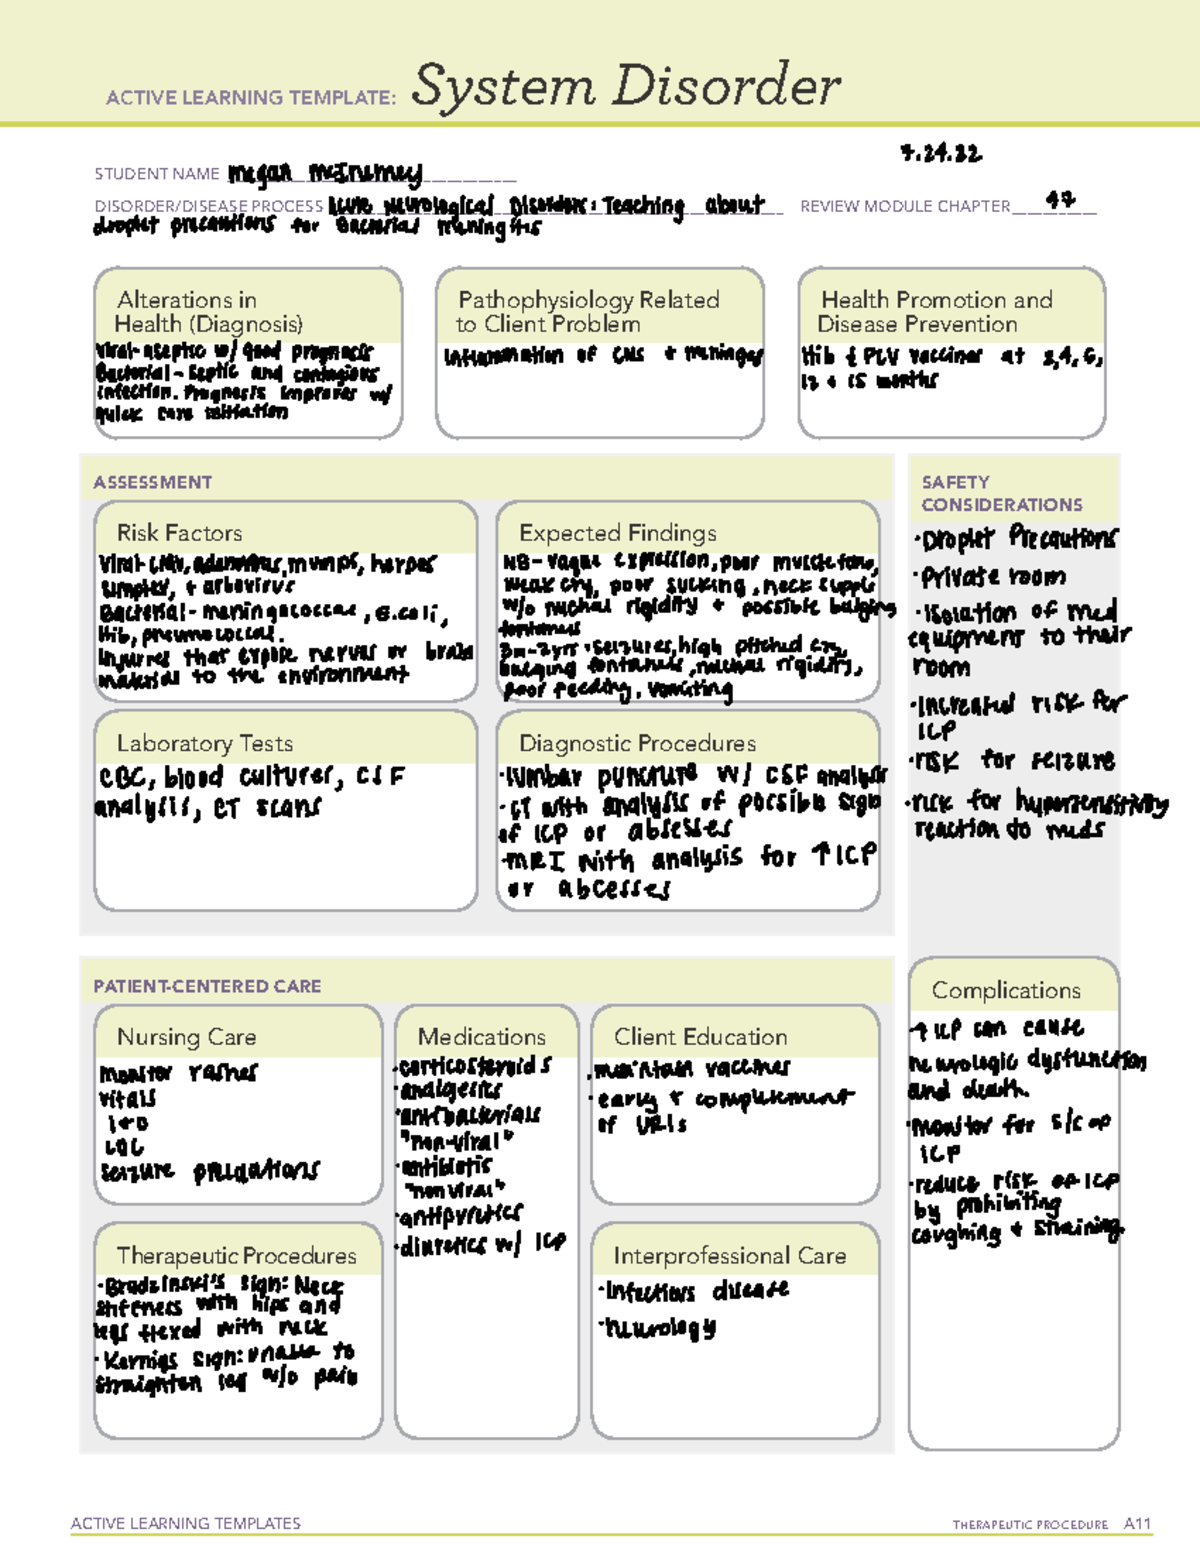 ACTIVE LEARNING TEMPLATE: System Disorder
7.24.22
STUDENT NAME Megan McInerney
DISORDER/DISEASE PROCESS Acute Neurological Disorders: Teaching about
droplet precautions for Bacterial meningitis
REVIEW MODULE CHAPTER
Alterations in
Health (Diagnosis)
Viral-aseptic w/ good prognosis
Bacterial-septic and contagious
infection. Prognosis improves w/
quick care initiation
Pathophysiology Related
to Client Problem
Inflammation of CNS + meninges
Health Promotion and
Disease Prevention
Hib & PCV vaccines at 2,4,6,
12 + 15 months
ASSESSMENT
Risk Factors
Viral-CMV, adenovirus, mumps, herpes
simplex, + arbovirus
Bacterial-meningococcae, E.coli,
Hib, pneumococcal.
Injuries that expose nerves or brain
material to the environment
Expected Findings
NB-vague expression, poor muscle tone,
weak cry, poor sucking, neck supple
w/o nuchal rigidity + possible bulging
fontanels
3m-2yrs: seizures, high pitched cry,
bulging fontanels, nuchal rigidity,
poor feeding, vomiting
Laboratory Tests
CBC, blood cultures, CSF
analysis, CT scans
Diagnostic Procedures
·lumbar puncture w/ CSF analysis
·CT with analysis of possible sign
of ICP or absesses
·MRI with analysis for ↑ICP
or abcesses
SAFETY
CONSIDERATIONS
·Droplet Precautions
·Private room
·Isolation of med
equipment to their
room
·Increased risk for
ICP
·risk for seizure
·risk for hypersensitivity
reaction to meds
PATIENT-CENTERED CARE
Nursing Care
Monitor rashes
vitals
I+O
LOC
Seizure precautions
Medications
·corticosteroids
·analgesics
·antibacterials
"non-viral"
·antibiotic
"non viral"
·antipyretics
·diuretics w/ ICP
Client Education
·maintain vaccines
·early + complement
of URIs
Therapeutic Procedures
·Brudzinski's sign: Neck
stiffness with hips and
legs flexed with neck
·Kernigs sign: unable to
straighten leg w/o pain
Interprofessional Care
·Infectious disease
·neurology
Complications
↑ ICP can cause
neurologic dysfunction
and death.
·monitor for s/s of
ICP
·reduce risk of ICP
by prohibiting
coughing + straining
ACTIVE LEARNING TEMPLATES
THERAPEUTIC PROCEDURE A11